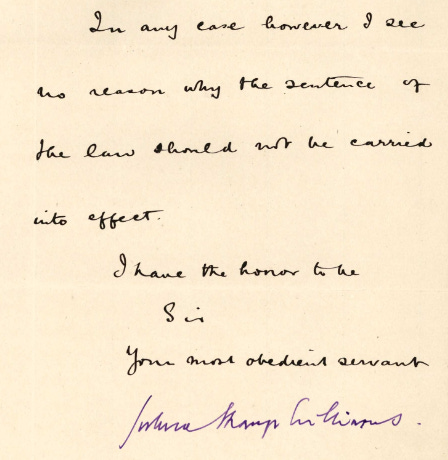 In any case however I see
no reason why the sentence of
the law should not be carried
into effect.
I have the honor to be
Sir
Your most obedient servant
Joshua Strange Williams.